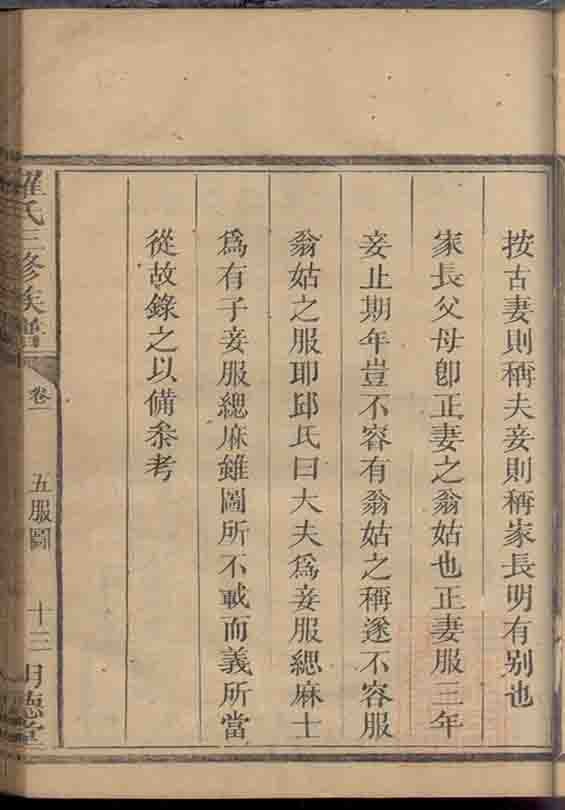 按古妻則稱夫妾則稱家長明有别也
家長父母卽正妻之翁姑也正妻服三年
妾止期年豈不容有翁姑之稱遂不容服
翁姑之服耶邱氏曰大夫爲妾服緦麻士
爲有子妾服緦麻雖圖所不載而義所當
從故錄之以備叅考
羅氏三修族譜
卷一
五服圖
十三
明德堂